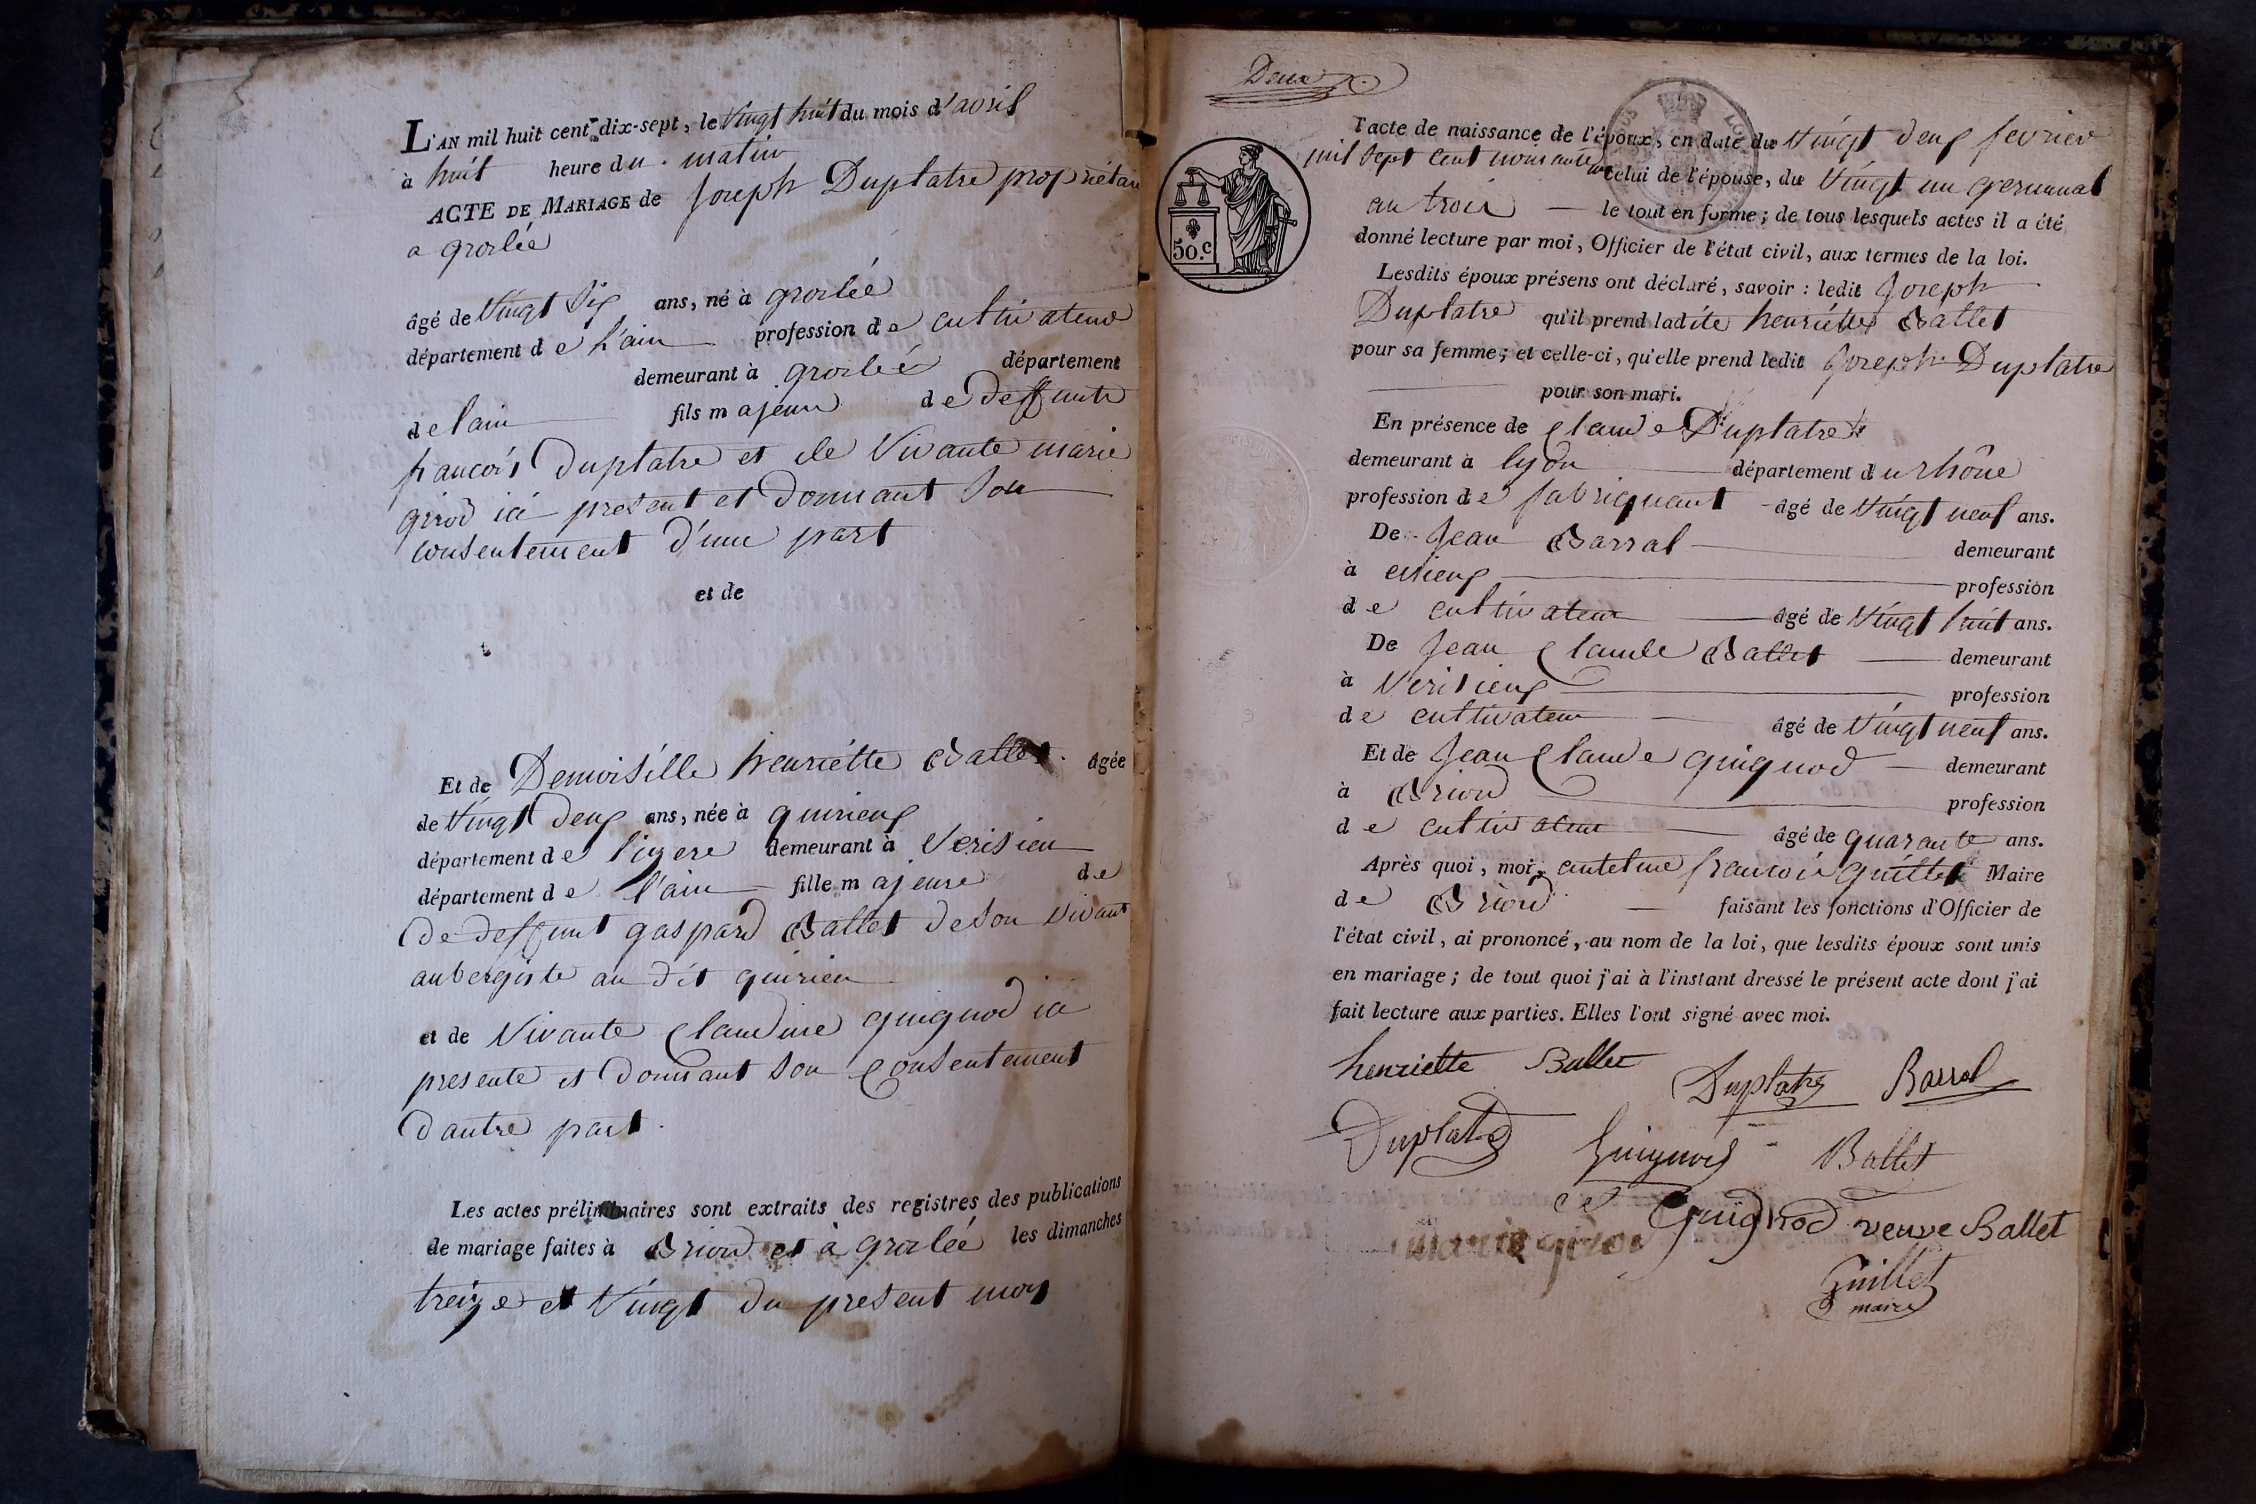 L'AN mil huit cent dix-sept, le vingt huit du mois d'avril
à huit heure du matin
ACTE DE MARIAGE de Joseph Duplatre propriétaire
a groslée
âgé de vingt six ans, né à groslée
département de l'ain profession de cultivateur
demeurant à groslée département
de lain fils majeur de deffunt
francois Duplatre et de Vivante marie
girod ici present et donnant son
consentement d'une part
et de
Et de Demoiselle henriette Ballet âgée
de vingt deux ans, née à quirieux
département de l'izere demeurant à Verisieu
département de l'ain fille majeure de
de deffunt gaspard Ballet de son vivant
aubergiste au dit quirieu
et de Vivante Claudine guignod ici
presente et donnant son consentement
d'autre part.
Les actes préliminaires sont extraits des registres des publications
de mariage faites à Briord et à groslée les dimanches
treize et vingt du present mois
Deux
50.c
l'acte de naissance de l'époux, en date du vingt deux fevrier
mil sept cent nonante un celui de l'épouse, du vingt un germinal
an trois le tout en forme; de tous lesquels actes il a été
donné lecture par moi, Officier de l'état civil, aux termes de la loi.
Lesdits époux présens ont déclaré, savoir : ledit Joseph
Duplatre qu'il prend ladite henriette Ballet
pour sa femme; et celle-ci, qu'elle prend ledit Joseph Duplatre
pour son mari.
En présence de Claude Duplatre
demeurant à lyon département du rhône
profession de fabriquant âgé de vingt neuf ans.
De Jean Barral demeurant
à profession
de cultivateur âgé de vingt huit ans.
De Jean Claude Ballet demeurant
à Verisieux profession
de cultivateur âgé de vingt neuf ans.
Et de Jean Claude guignod demeurant
à Briord profession
de cultivateur âgé de quarante ans.
Après quoi, moi, antelme francois guillet Maire
de Briord faisant les fonctions d'Officier de
l'état civil, ai prononcé, au nom de la loi, que lesdits époux sont unis
en mariage; de tout quoi j'ai à l'instant dressé le présent acte dont j'ai
fait lecture aux parties. Elles l'ont signé avec moi.
henriette Ballet Duplatre Barral
Duplatre Guignod Ballet
marie girod Guignod veuve Ballet
Guillet
maire